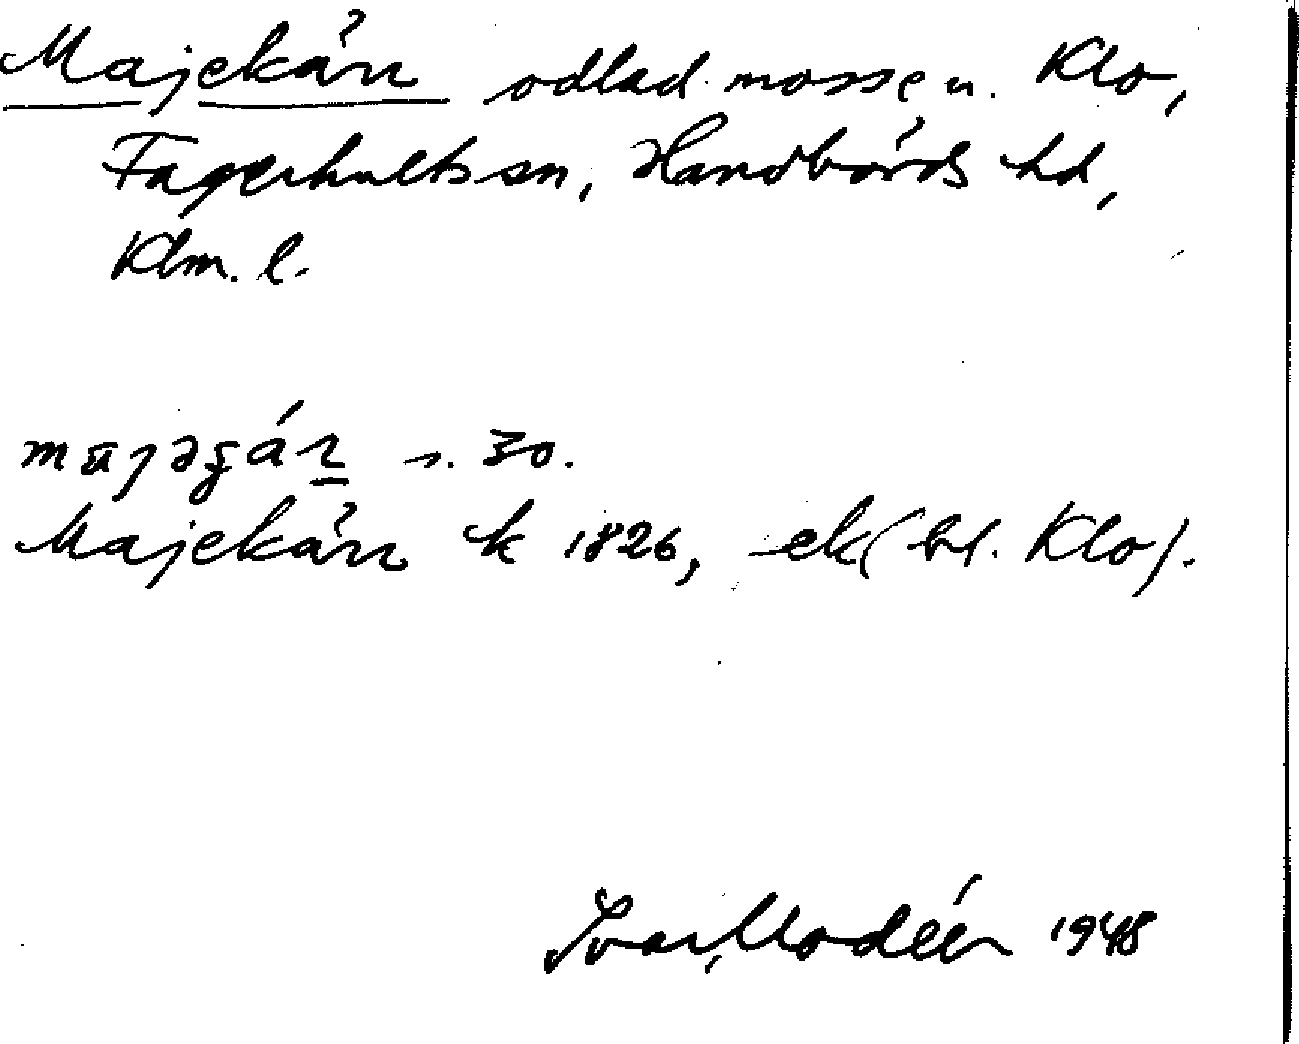 Majekärr odlad mosse u. Klo,
Fagerhults sn, Handbörds hd,
Klm. l.
s. 30.
Majekärr k 1826, ek (bl. Klo).
Ivar Modéer 1948